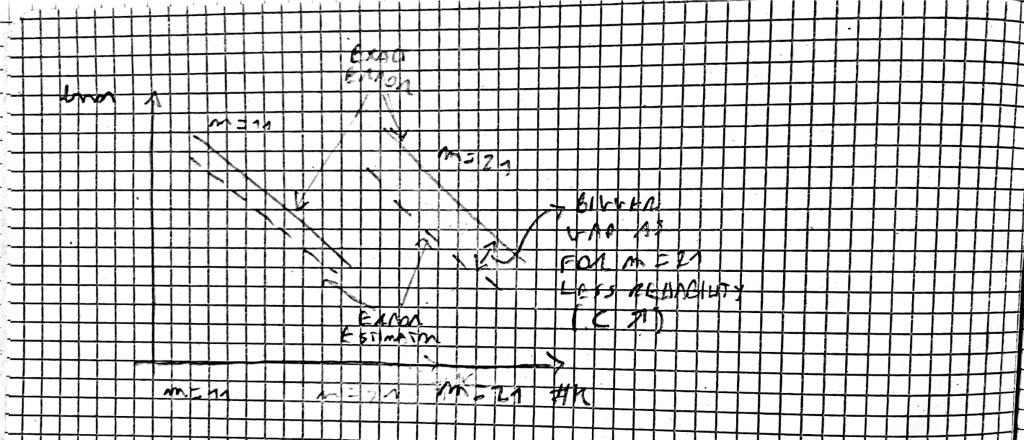 EXACT
ERROR
Error
m=11
m=21
BIGGER
GAP AS
FOR m=21
LESS RELIABILITY
(C ↗)
ERROR
ESTIMATOR
m=11
m=21
m=21
#K